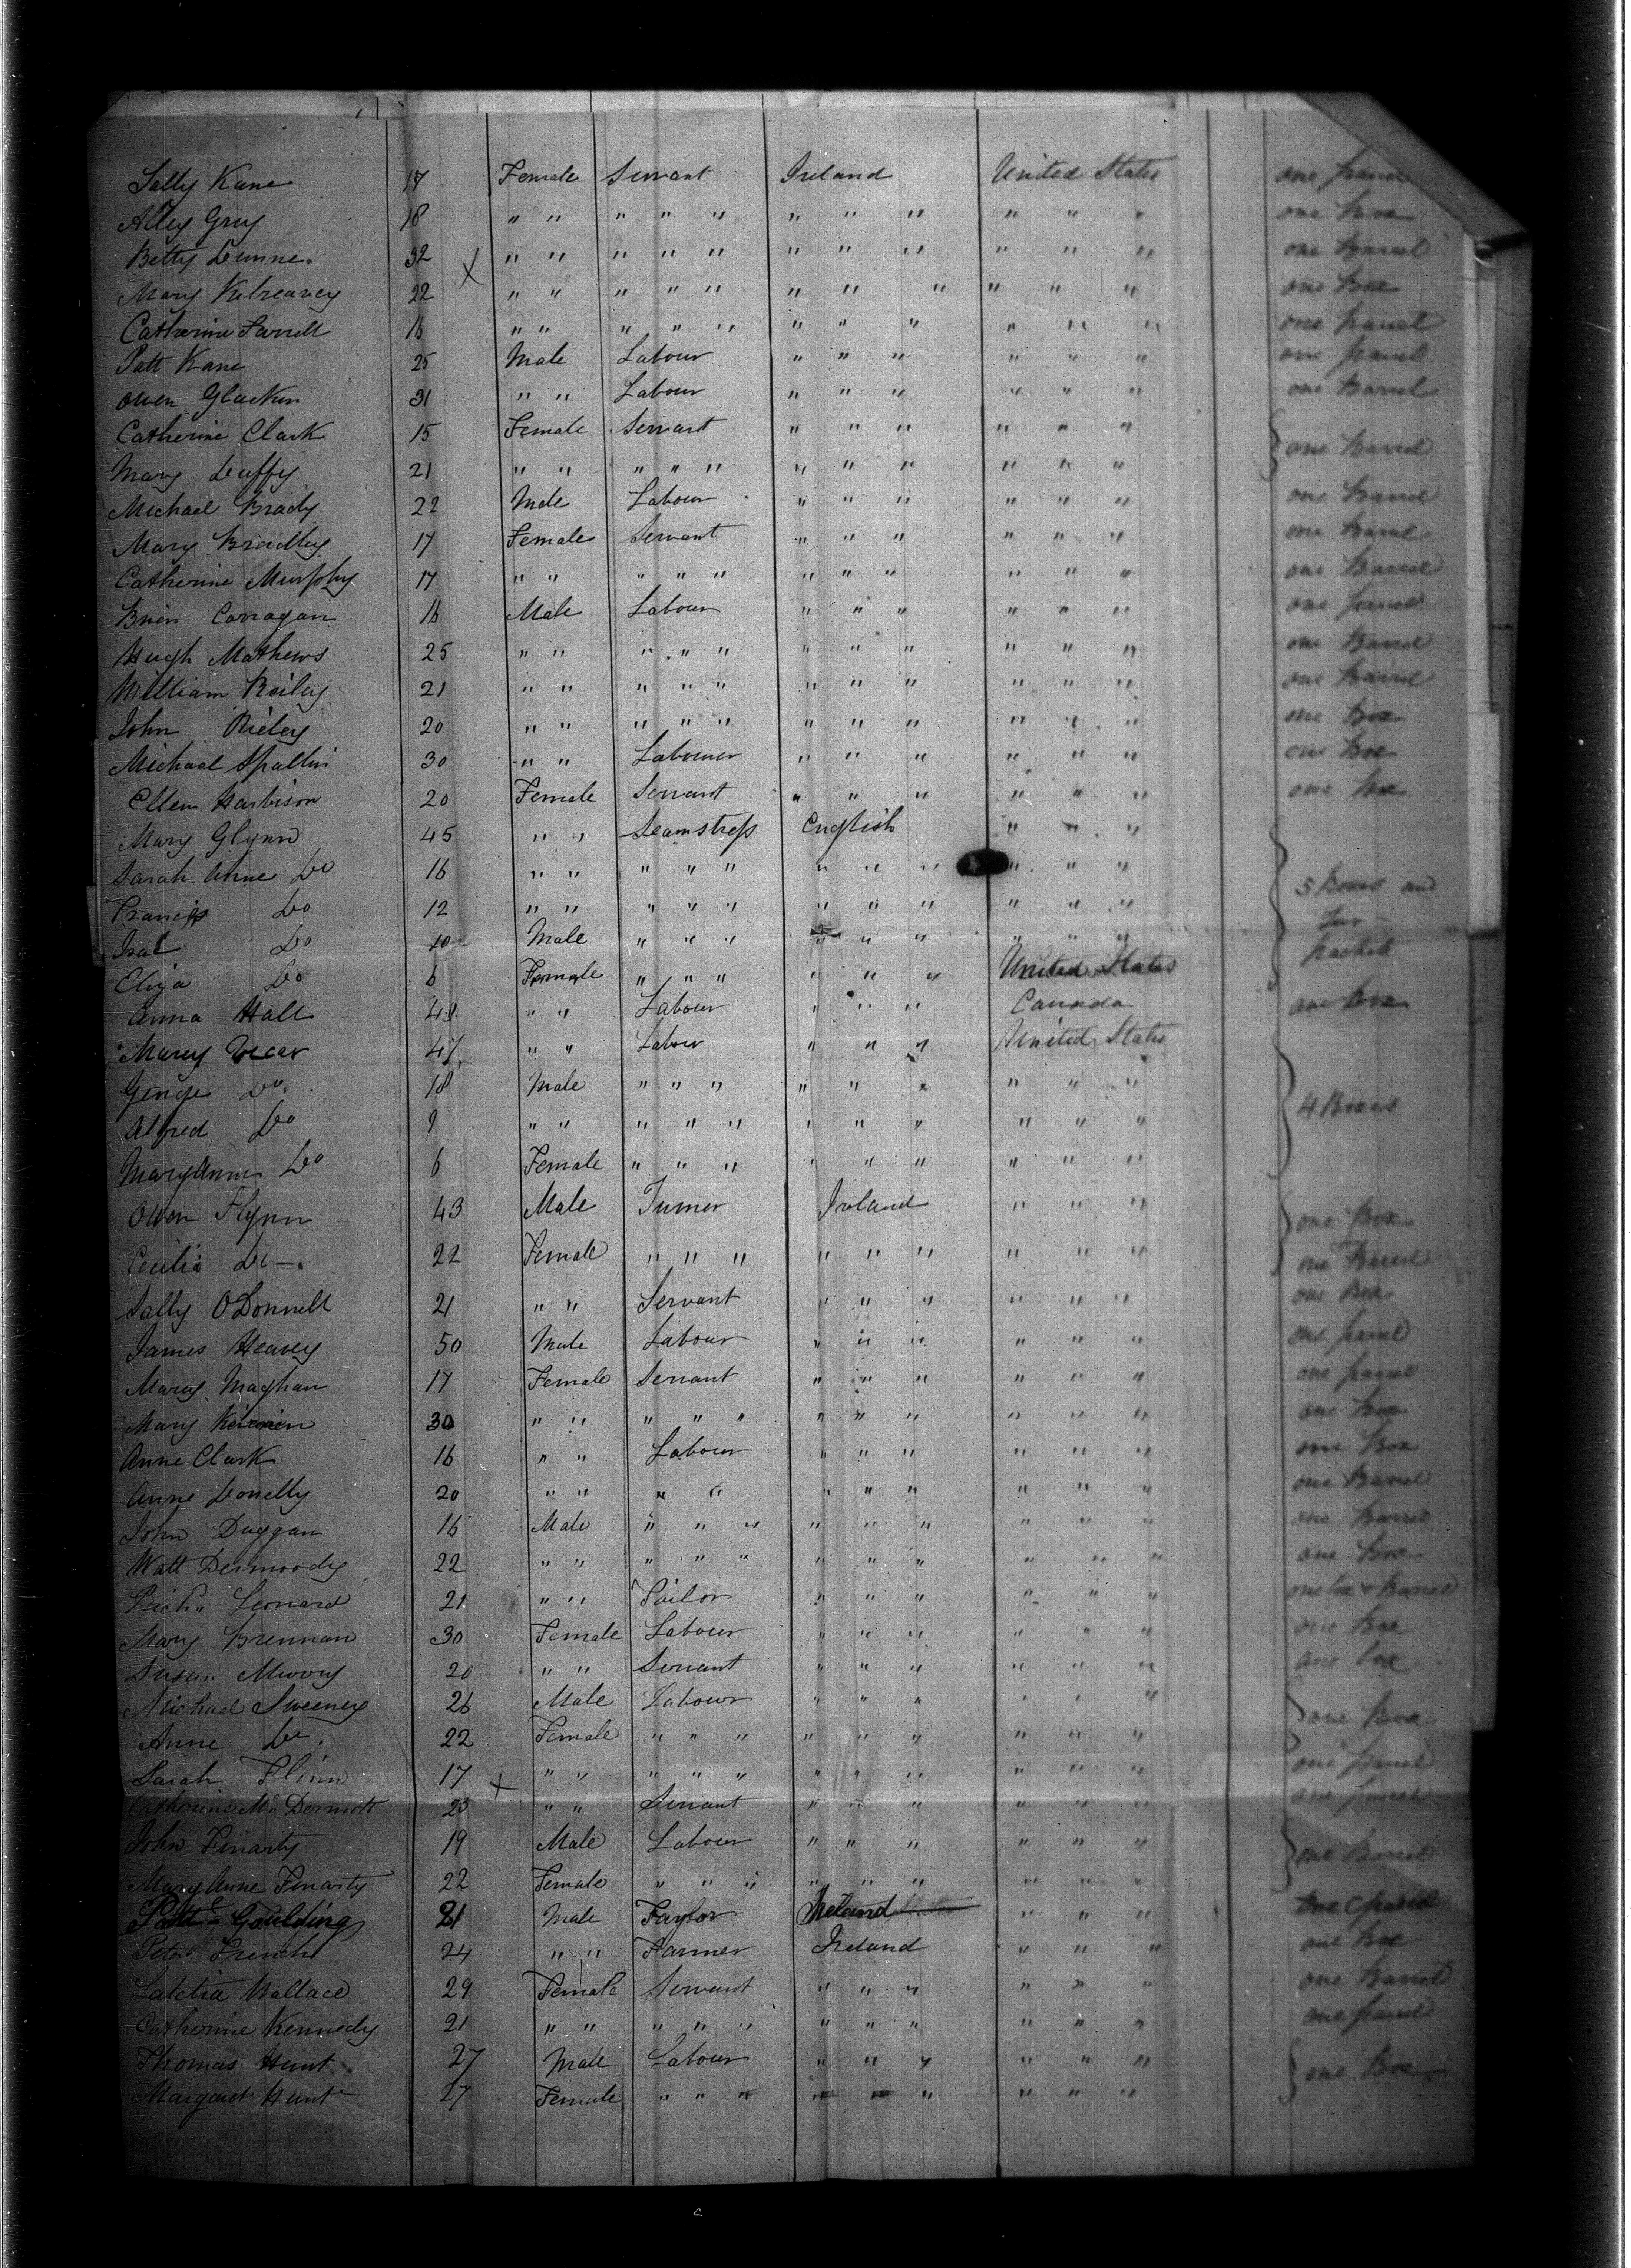 Sally Kane 17 Female Servant Ireland United States one parcel
Alley Grey 18 " " " " " " " " " " " one Box
Betty Dunne. 32 " " " " " " " " " " " one Barrel
Mary Kilreavey 22 " " " " " " " " " " " one Box
Catherine Farrell 16 " " " " " " " " " " " one parcel
Patt Kane 25 Male Labour " " " " " " one parcel
Owen Glackin 31 " " Labour " " " " " " one Barrel
Catherine Clark 15 Female Servant " " " " " " one Barrel
Mary Duffy 21 " " " " " " " " " " "
Michael Brady 22 Male Labour " " " " " " one Barrel
Mary Bradley 17 Female Servant " " " " " " one Barrel
Catherine Murphy 17 " " " " " " " " " " " one Barrel
Brien Corragan 16 Male Labour " " " " " " one parcel
Hugh Mathews 25 " " " " " " " " " " " one Barrel
William Reiley 21 " " " " " " " " " " " one Barrel
John Rieley 20 " " " " " " " " " " " one Box
Michael Spallin 30 " " Labourer " " " " " " one Box
Ellen Harbison 20 Female Servant " " " " " " one Box
Mary Glynn 45 " " Seamstress English " " "
Sarah Anne Do 16 " " " " " " " " " " "
Francis Do 12 " " " " " " " " " " " 5 Boxes and
Do 10 Male " " " " " " " " " Two
Eliza Do 6 Female " " " " " " United States packets
Anna Hall 41 " " Labour " " " Canada one box
Marey 47 " " Labour " " " United States
George Do. 18 Male " " " " " " " " "
Alfred Do 9 " " " " " " " " " " " 4 Boxes
MaryAnne Do 6 Female " " " " " " " " "
Owen Flynn 43 Male Turner Ireland " " " one Box
Cecilia Do 22 Female " " " " " " " " " one Barrel
Sally O'Donnell 21 " " Servant " " " " " " one Box
James Heavey 50 Male Labour " " " " " " one parcel
Mary Maghan 17 Female Servant " " " " " " one parcel
Mary 30 " " " " " " " " " " " one Box
Anne Clark 16 " " Labour " " " " " " one Box
Anne Donelly 20 " " " " " " " " " " one Barrel
John Duggan 16 Male " " " " " " " " " one Barrel
Watt Dermoody 22 " " " " " " " " " " " one Box
Richd Leonard 21 " " Tailor " " " " " " one box & Barrel
Mary Brennan 30 Female Labour " " " " " " one Box
Susan 20 " " Servant " " " " " " one box
Michael Sweeney 26 Male Labour " " " " " " one Box
Anne Do. 22 Female " " " " " " " " "
Sarah Flinn 17 " " " " " " " " " " " one parcel
Catherine Mc Dermott 23 " " Servant " " " " " " one parcel
John Finarty 19 Male Labour " " " " " " one Barrel
Mary Anne Finarty 22 Female " " " " " " " " "
Patt Goulding 21 Male Taylor Ireland " " " one parcel
Peter French 24 " " Farmer Ireland " " " one Box
Latetia Wallace 29 Female Servant " " " " " " one Barrel
Catherine Kennedy 21 " " " " " " " " " " " one parcel
Thomas Hunt 27 Male Labour " " " " " " one Box
Margaret Hunt 27 Female " " " " " " " " "